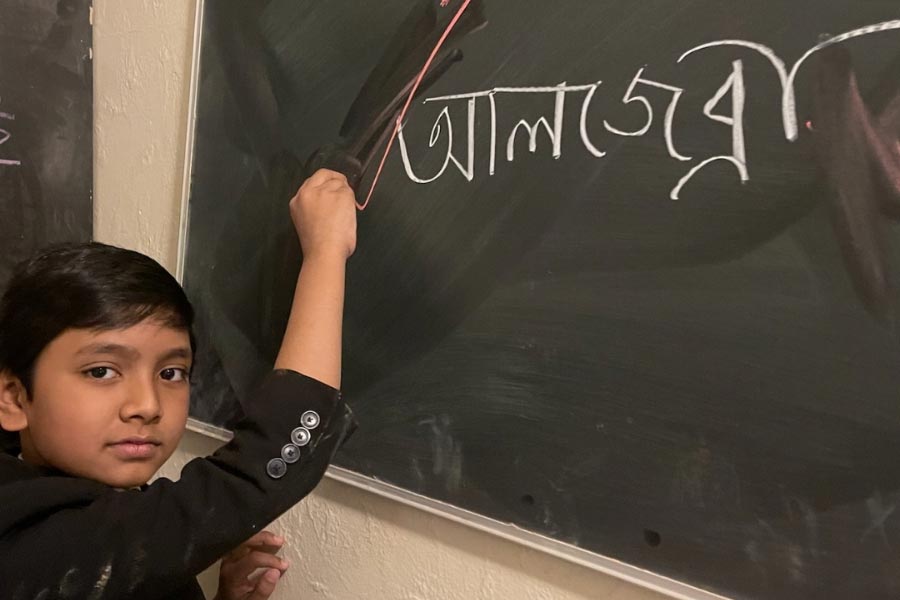 আলজেব্রা